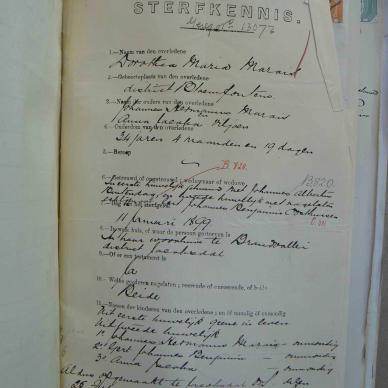 STERFKENNIS.
13073
1.—Naam van den overledene
Dorothea Maria Marais
2.—Geboorteplaats van den overledene
district Bloemfontein
3.—Naam der ouders van den overledene
Johannes Hermanus Marais
en Anna Jacoba
4.—Ouderdom van den overledene
34 jaren 4 maanden en 19 dagen
5.—Beroep
B.820.
B820.
6.—Getrouwd of ongetrouwd; weduwnaar of weduwe
In eerste huwelijk met Johannes Albertus
tweede huwelijk met nagelaten
Johannes Benjamin
7.—Dag van het sterfgeval
11 Januari 1899
8.—In welk huis, of waar de persoon gestorven is
In haar woonhuis te Brandvallei
district Jacobsdal
9.—Of er een testament is
Ja
10.—Welke goederen nagelaten; roerende of onroerende, of beide
Beide
11.—Namen der kinderen van den overledene; en of mondig of onmondig
Uit eerste huwelijk geene in leven
Uit tweede huwelijk
1e Johannes Hermanus Marais - onmondig
2e Johannes Benjamin - onmondig
3e Anna Jacoba - onmondig
Aldus opgemaakt te Jacobsdal den